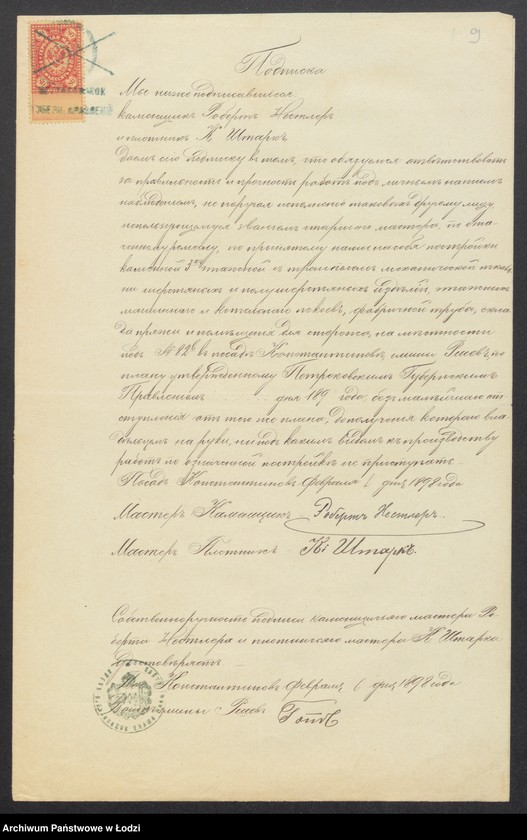 9
Подписка
Мы нижеподписавшiеся
каменщикъ Робертъ Нестлеръ
и плотникъ К. Штаркъ
даемъ сiю подписку въ томъ, что обязуемся отвѣтствовать
за правильность и прочность работъ подъ личнымъ нашимъ
наблюденiемъ, не поручая исполненiе таковыхъ другому лицу,
непользующемуся званiемъ старшаго мастера, по озна-
ченному ремеслу, по принятому нами способу постройки
каменной 3хъ этажной съ механической
шерстяныхъ и полушерстяныхъ издѣлiй, этажныхъ
машиннаго и котельнаго покоевъ, фабричной трубы, скла-
да пряжи и помѣщенiя для сторожа, на мѣстности
подъ № 82 въ посадѣ Константиновѣ, по
плану утвержденному Петроковскимъ Губернскимъ
Правленiемъ дня 189 года, безъ малѣйшаго от
ступленiя отъ того же плана, до полученiя котораго вла
дѣльцемъ на руки, ни подъ какимъ видомъ къ производству
работъ по означенной постройкѣ не приступать.
Посадъ Константиновъ Февраля 6 дня 1898 года
Мастеръ Каменщикъ Робертъ Нестлеръ
Мастеръ Плотникъ К Штаркъ.
Собственноручность подписи каменщичьяго мастера Ро-
берта Нестлера и плотничьяго мастера К. Штарка
удостовѣряетъ
Константиновъ Февраля 6 дня 1898 года
Archiwum Państwowe w Łodzi